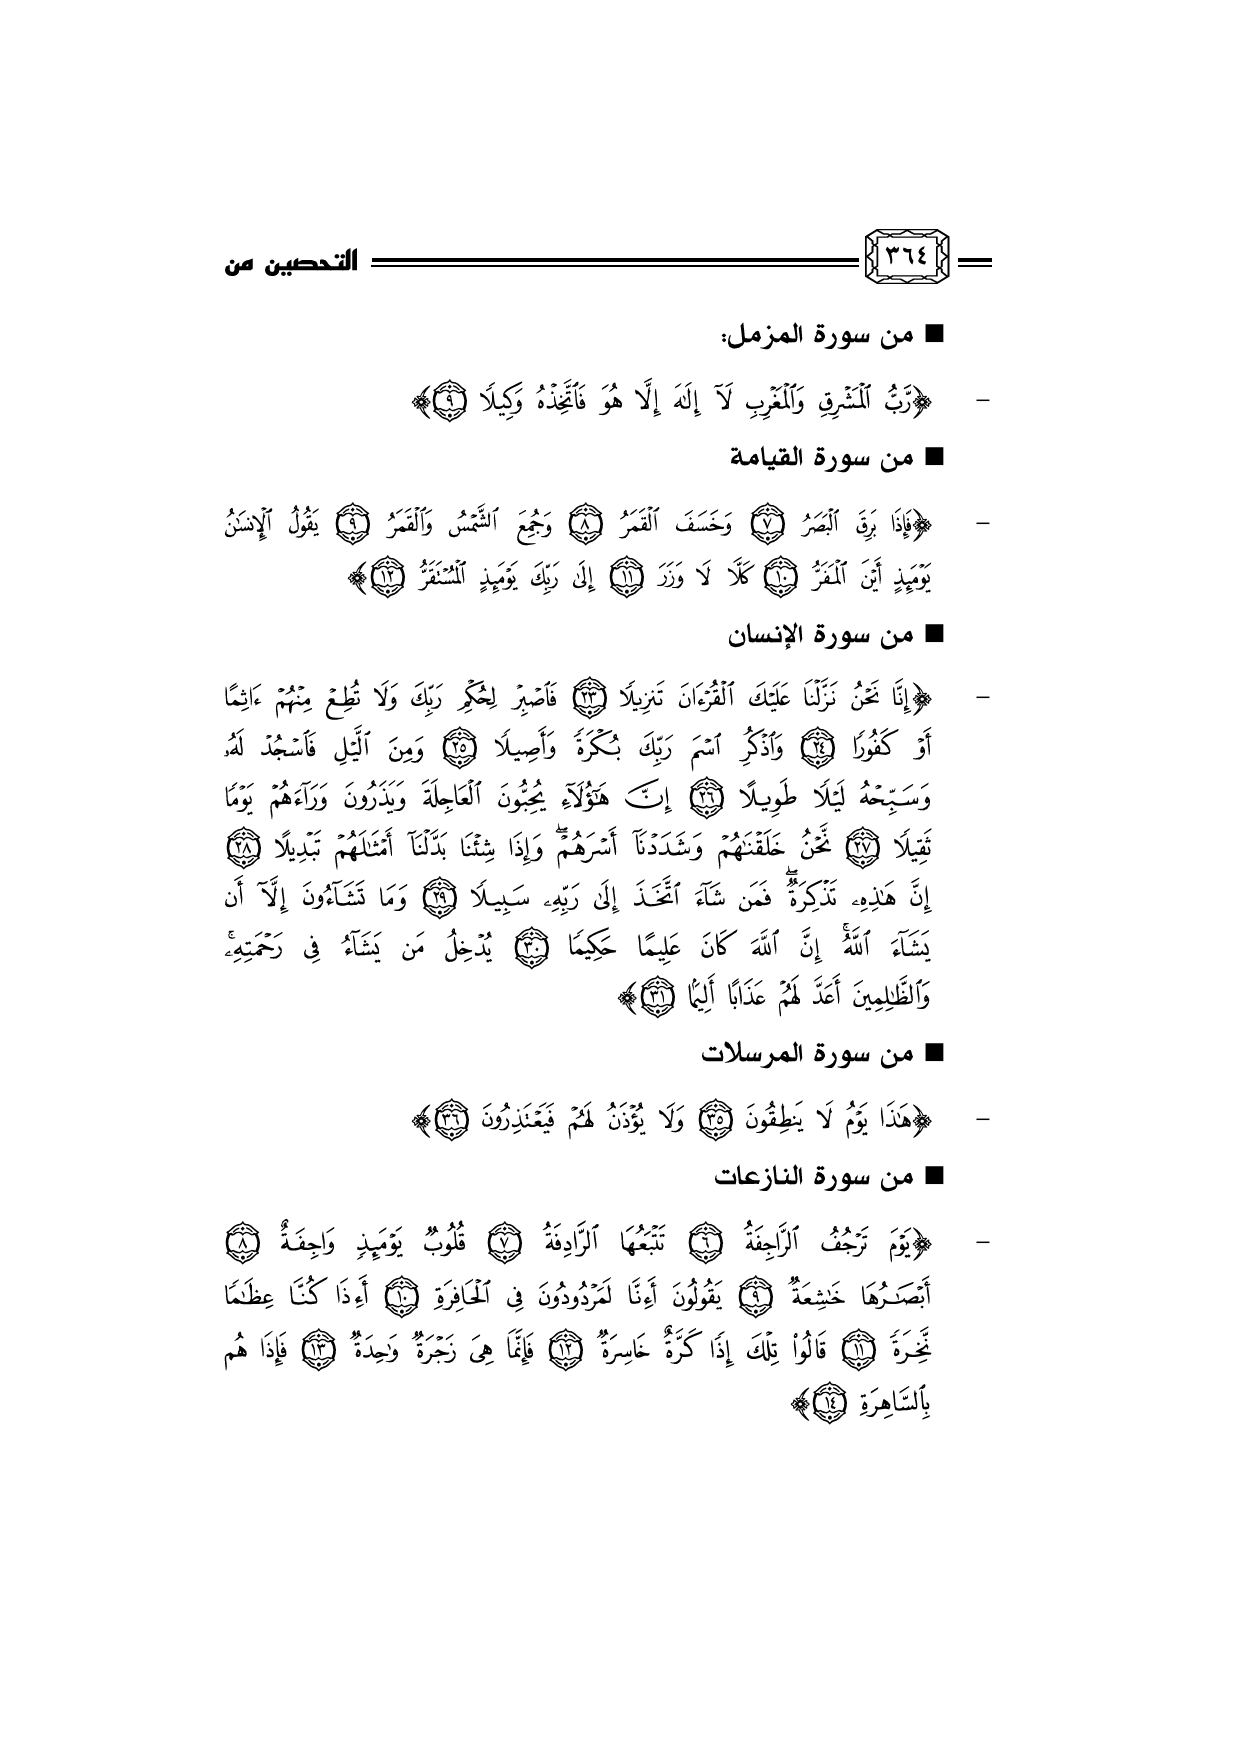 ٣٦٤ التحصين من
■ من سورة المزمل:
– ﴿رَّبُّ ٱلْمَشْرِقِ وَٱلْمَغْرِبِ لَآ إِلَٰهَ إِلَّا هُوَ فَٱتَّخِذْهُ وَكِيلًا ٩﴾
■ من سورة القيامة
– ﴿فَإِذَا بَرِقَ ٱلْبَصَرُ ٧ وَخَسَفَ ٱلْقَمَرُ ٨ وَجُمِعَ ٱلشَّمْسُ وَٱلْقَمَرُ ٩ يَقُولُ ٱلْإِنسَٰنُ
يَوْمَئِذٍ أَيْنَ ٱلْمَفَرُّ ١٠ كَلَّا لَا وَزَرَ ١١ إِلَىٰ رَبِّكَ يَوْمَئِذٍ ٱلْمُسْتَقَرُّ ١٢﴾
■ من سورة الإنسان
– ﴿إِنَّا نَحْنُ نَزَّلْنَا عَلَيْكَ ٱلْقُرْءَانَ تَنزِيلًا ٢٣ فَٱصْبِرْ لِحُكْمِ رَبِّكَ وَلَا تُطِعْ مِنْهُمْ ءَاثِمًا
أَوْ كَفُورًا ٢٤ وَٱذْكُرِ ٱسْمَ رَبِّكَ بُكْرَةً وَأَصِيلًا ٢٥ وَمِنَ ٱلَّيْلِ فَٱسْجُدْ لَهُۥ
وَسَبِّحْهُ لَيْلًا طَوِيلًا ٢٦ إِنَّ هَٰٓؤُلَآءِ يُحِبُّونَ ٱلْعَاجِلَةَ وَيَذَرُونَ وَرَآءَهُمْ يَوْمًا
ثَقِيلًا ٢٧ نَّحْنُ خَلَقْنَٰهُمْ وَشَدَدْنَآ أَسْرَهُمْ ۖ وَإِذَا شِئْنَا بَدَّلْنَآ أَمْثَٰلَهُمْ تَبْدِيلًا ٢٨
إِنَّ هَٰذِهِۦ تَذْكِرَةٌ ۖ فَمَن شَآءَ ٱتَّخَذَ إِلَىٰ رَبِّهِۦ سَبِيلًا ٢٩ وَمَا تَشَآءُونَ إِلَّآ أَن
يَشَآءَ ٱللَّهُ ۚ إِنَّ ٱللَّهَ كَانَ عَلِيمًا حَكِيمًا ٣٠ يُدْخِلُ مَن يَشَآءُ فِى رَحْمَتِهِۦ ۚ
وَٱلظَّٰلِمِينَ أَعَدَّ لَهُمْ عَذَابًا أَلِيمًۢا ٣١﴾
■ من سورة المرسلات
– ﴿هَٰذَا يَوْمُ لَا يَنطِقُونَ ٣٥ وَلَا يُؤْذَنُ لَهُمْ فَيَعْتَذِرُونَ ٣٦﴾
■ من سورة النازعات
– ﴿يَوْمَ تَرْجُفُ ٱلرَّاجِفَةُ ٦ تَتْبَعُهَا ٱلرَّادِفَةُ ٧ قُلُوبٌ يَوْمَئِذٍ وَاجِفَةٌ ٨
أَبْصَٰرُهَا خَٰشِعَةٌ ٩ يَقُولُونَ أَءِنَّا لَمَرْدُودُونَ فِى ٱلْحَافِرَةِ ١٠ أَءِذَا كُنَّا عِظَٰمًا
نَّخِرَةً ١١ قَالُوا۟ تِلْكَ إِذًا كَرَّةٌ خَاسِرَةٌ ١٢ فَإِنَّمَا هِىَ زَجْرَةٌ وَٰحِدَةٌ ١٣ فَإِذَا هُم
بِٱلسَّاهِرَةِ ١٤﴾